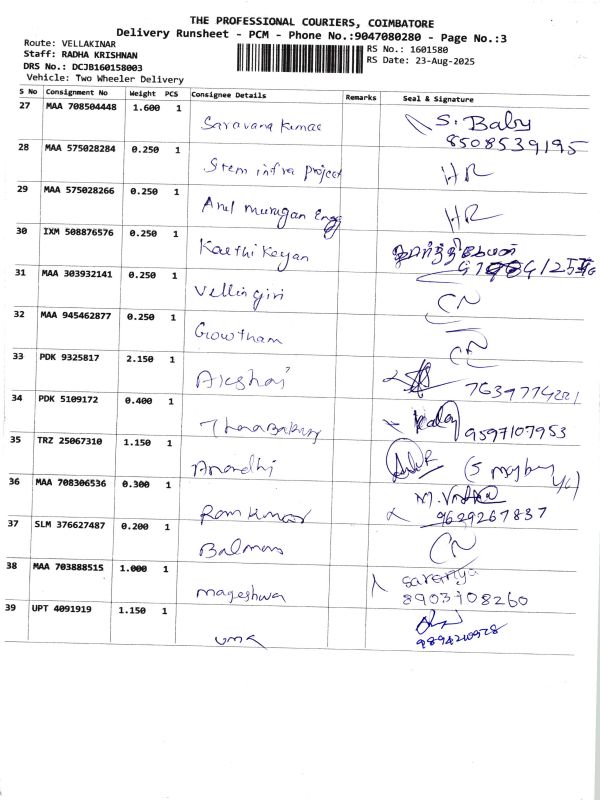 THE PROFESSIONAL COURIERS, COIMBATORE
Delivery Runsheet - PCM - Phone No.:9047080280 - Page No.:3
Route: VELLAKINAR
Staff: RADHA KRISHNAN
DRS No.: DCJB160158003
Vehicle: Two Wheeler Delivery
RS No.: 1601580
RS Date: 23-Aug-2025
S No Consignment No Weight PCS Consignee Details Remarks Seal & Signature
27 MAA 708504448 1.600 1 Saravana Kumar S. Baby
8508539195
28 MAA 575028284 0.250 1 Stem infra project HR
29 MAA 575028266 0.250 1 Arul murugan Engg HR
30 IXM 508876576 0.250 1 Karthi Keyan கார்த்திகேயன்
31 MAA 303932141 0.250 1 Vellingiri CN
32 MAA 945462877 0.250 1 Gowtham CN
33 PDK 9325817 2.150 1 Akshai
34 PDK 5109172 0.400 1 9597107953
35 TRZ 25067310 1.150 1 Anandhi
36 MAA 708306536 0.300 1 Ram Kumar
9629267837
37 SLM 376627487 0.200 1 CN
38 MAA 703888515 1.000 1 Mageshwa Saranya
8903708260
39 UPT 4091919 1.150 1 uma